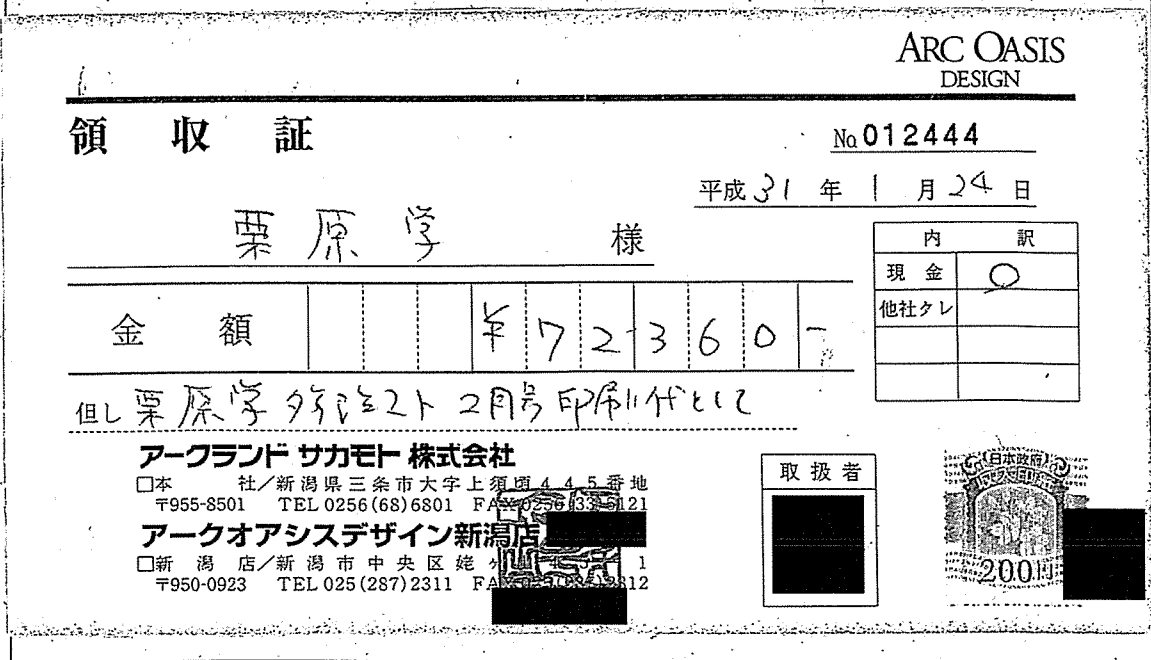 ARC OASIS
DESIGN
領収証
No. 012444
平成31年1月24日
栗原学 様
内訳
現金 ○
他社タレ
金額 ¥72360-
但し 栗原学 2月号印刷代として
アークランド サカモト 株式会社
□本社/新潟県三条市大字上須頃445番地
〒955-8501 TEL 0256(68)6801 FAX 0256(33)6121
アークオアシスデザイン新潟店
□新潟店/新潟市中央区姥ヶ
〒950-0923 TEL 025(287)2311
取扱者
日本政府
200円